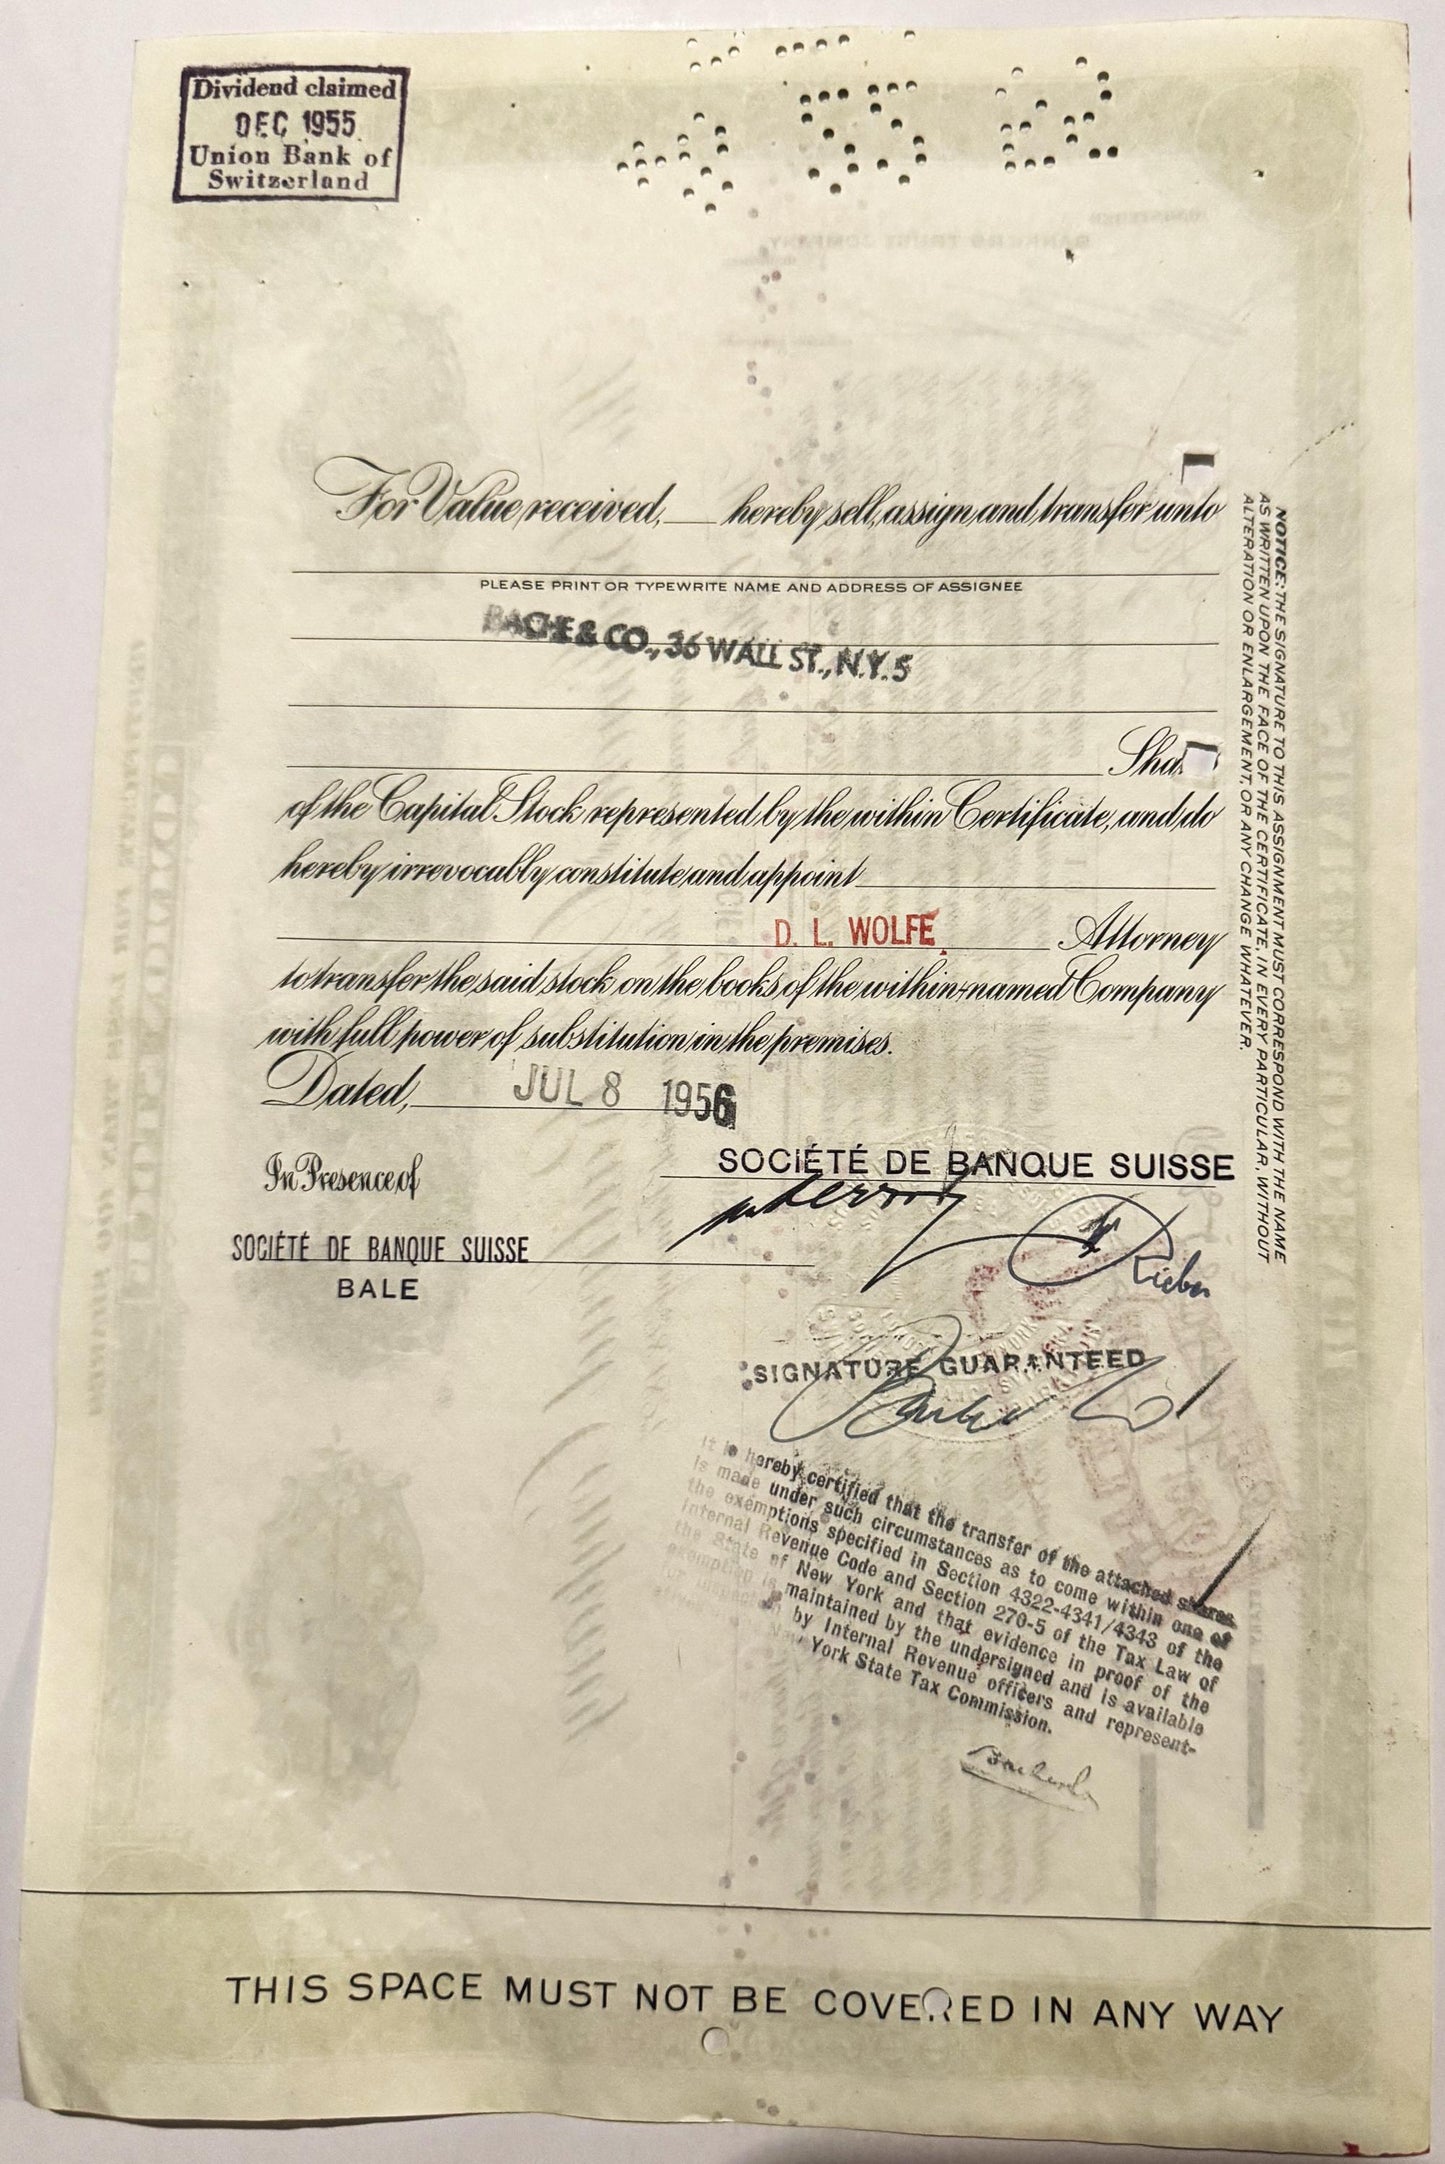 Dividend claimed
DEC 1955
Union Bank of
Switzerland
For Value received, hereby sell, assign and transfer unto
PLEASE PRINT OR TYPEWRITE NAME AND ADDRESS OF ASSIGNEE
BACHE & CO., 36 WALL ST., N.Y. 5
of the Capital Stock represented by the within Certificate, and do
hereby irrevocably constitute and appoint
D. L. WOLFE Attorney
to transfer the said stock on the books of the within-named Company
with full power of substitution in the premises.
Dated, JUL 8 1956
In Presence of
SOCIÉTÉ DE BANQUE SUISSE
SOCIÉTÉ DE BANQUE SUISSE
BALE
SIGNATURE GUARANTEED
It is hereby certified that the transfer of the attached shares
is made under such circumstances as to come within one of
the exemptions specified in Section 4322-4341/4343 of the
Internal Revenue Code and Section 270-5 of the Tax Law of
the State of New York and that evidence in proof of the
exemption is maintained by the undersigned and is available
by Internal Revenue officers and represent-
York State Tax Commission.
NOTICE: THE SIGNATURE TO THIS ASSIGNMENT MUST CORRESPOND WITH THE NAME
AS WRITTEN UPON THE FACE OF THE CERTIFICATE, IN EVERY PARTICULAR, WITHOUT
ALTERATION OR ENLARGEMENT, OR ANY CHANGE WHATEVER.
THIS SPACE MUST NOT BE COVERED IN ANY WAY